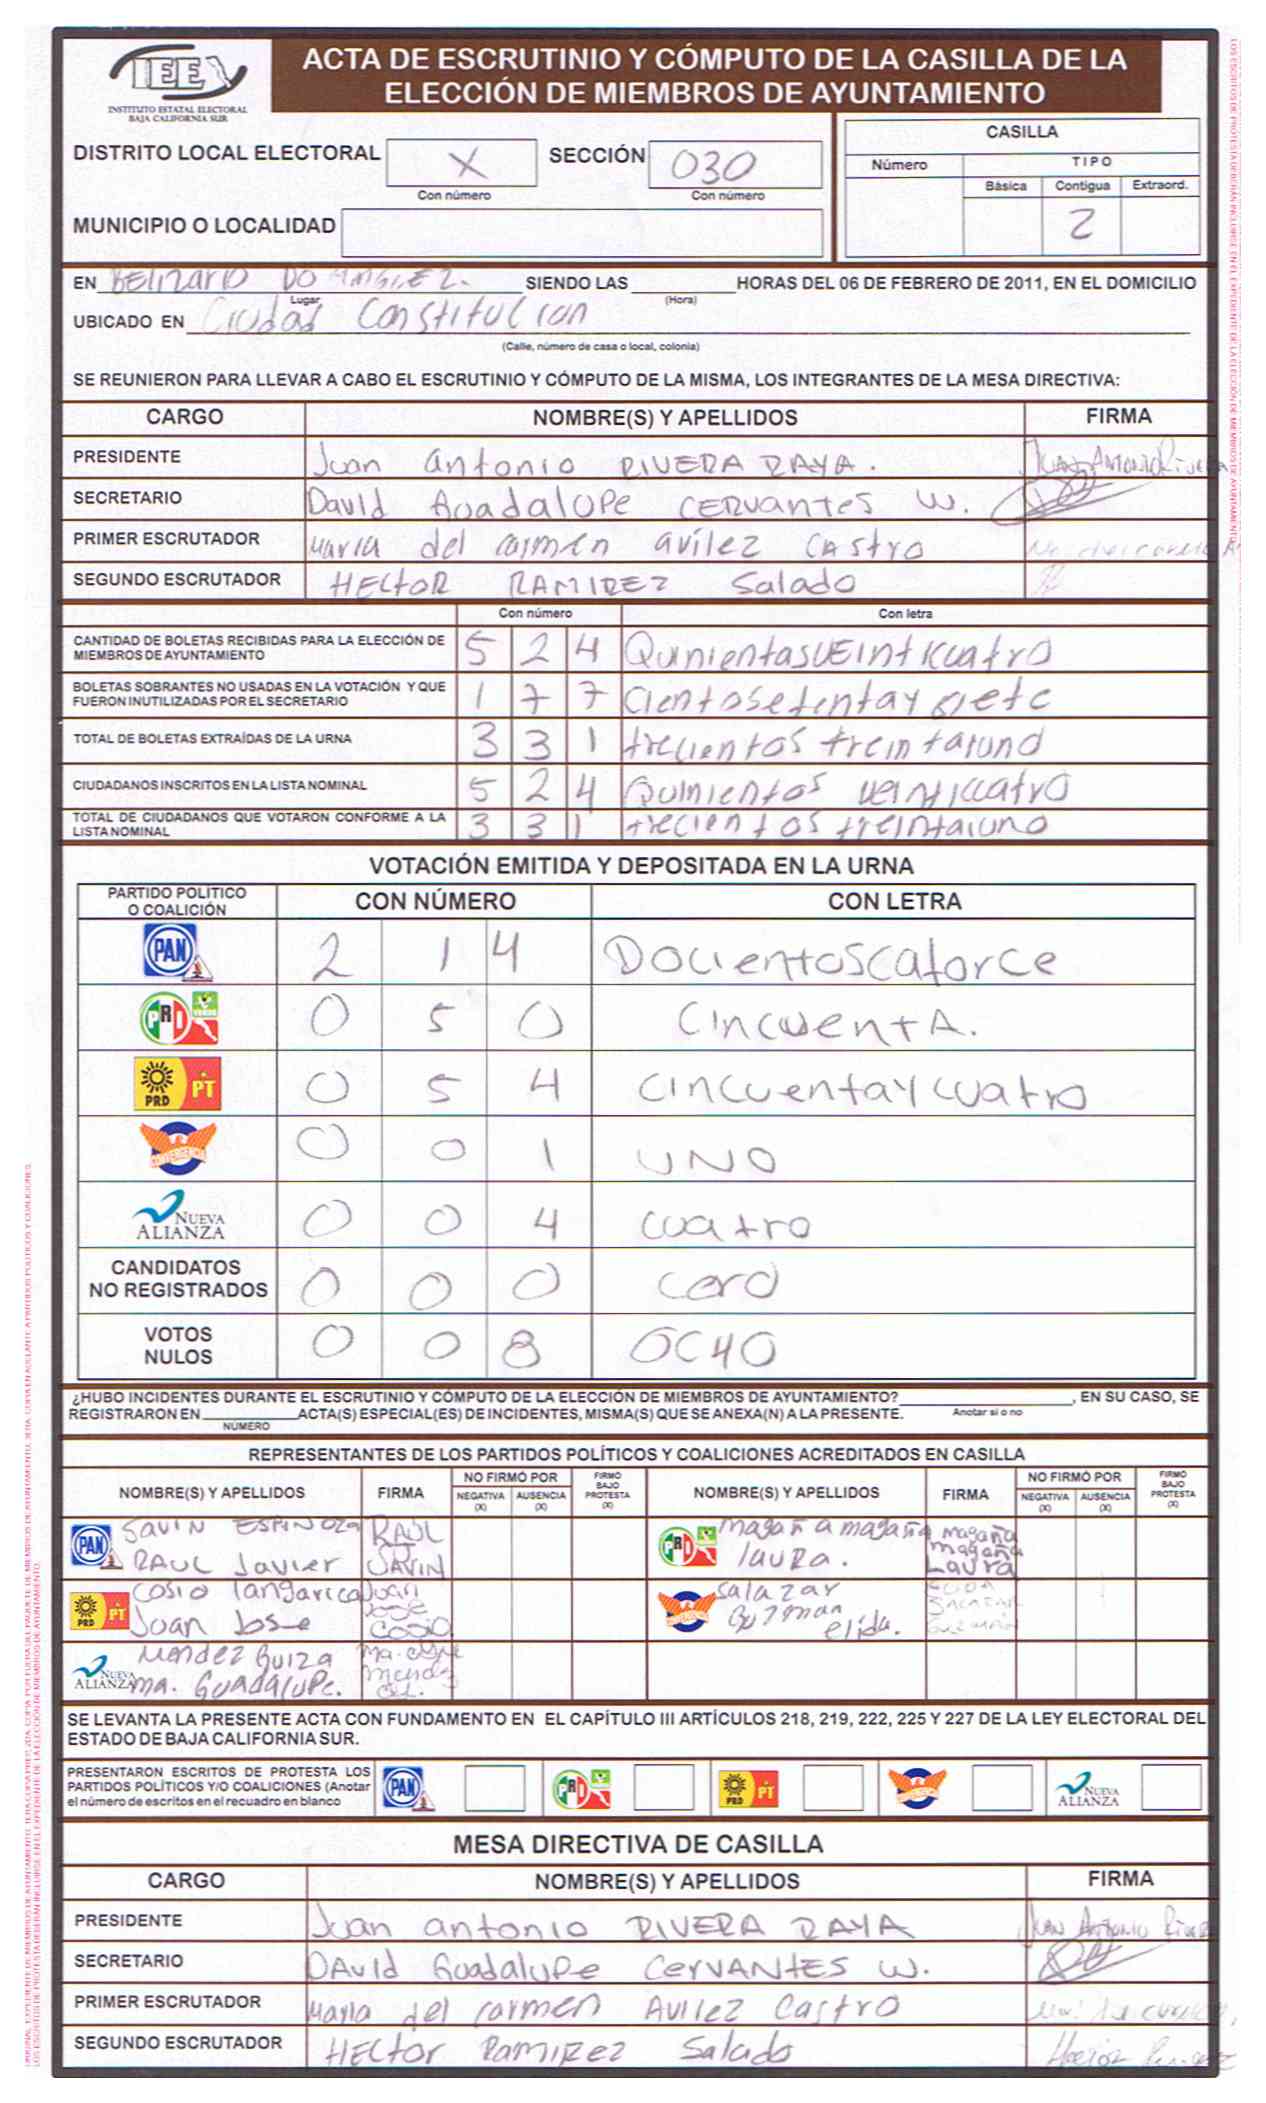 IEE
INSTITUTO ESTATAL ELECTORAL
BAJA CALIFORNIA SUR
ACTA DE ESCRUTINIO Y CÓMPUTO DE LA CASILLA DE LA
ELECCIÓN DE MIEMBROS DE AYUNTAMIENTO
DISTRITO LOCAL ELECTORAL X SECCIÓN 030
Con número Con número
MUNICIPIO O LOCALIDAD
CASILLA
Número TIPO
Básica Contigua Extraord.
2
EN BELIZARIO DOMINGUEZ. SIENDO LAS HORAS DEL 06 DE FEBRERO DE 2011, EN EL DOMICILIO
Lugar (Hora)
UBICADO EN Ciudad Constitucion
(Calle, número de casa o local, colonia)
SE REUNIERON PARA LLEVAR A CABO EL ESCRUTINIO Y CÓMPUTO DE LA MISMA, LOS INTEGRANTES DE LA MESA DIRECTIVA:
CARGO NOMBRE(S) Y APELLIDOS FIRMA
PRESIDENTE Juan antonio RIVERA RAYA. Juan Antonio Rivera
SECRETARIO David Guadalupe CERVantes W.
PRIMER ESCRUTADOR Maria del carmen avilez Castro
SEGUNDO ESCRUTADOR HECtoR RAMIREZ Salado
Con número Con letra
CANTIDAD DE BOLETAS RECIBIDAS PARA LA ELECCIÓN DE
MIEMBROS DE AYUNTAMIENTO 5 2 4 QuinientasVEintKuatro
BOLETAS SOBRANTES NO USADAS EN LA VOTACIÓN Y QUE
FUERON INUTILIZADAS POR EL SECRETARIO 1 7 7 cientosetentay siete
TOTAL DE BOLETAS EXTRAÍDAS DE LA URNA 3 3 1 trecientos treintaiuno
CIUDADANOS INSCRITOS EN LA LISTA NOMINAL 5 2 4 Quinientos veinticuatro
TOTAL DE CIUDADANOS QUE VOTARON CONFORME A LA
LISTA NOMINAL 3 3 1 trecientos treintaiuno
VOTACIÓN EMITIDA Y DEPOSITADA EN LA URNA
PARTIDO POLÍTICO
O COALICIÓN CON NÚMERO CON LETRA
PAN 2 1 4 Docientoscatorce
PRI VERDE 0 5 0 CincuentA.
PRD PT 0 5 4 cincuentaycuatro
CONVERGENCIA 0 0 1 UNO
NUEVA ALIANZA 0 0 4 cuatro
CANDIDATOS
NO REGISTRADOS 0 0 0 cero
VOTOS
NULOS 0 0 8 OCHO
¿HUBO INCIDENTES DURANTE EL ESCRUTINIO Y CÓMPUTO DE LA ELECCIÓN DE MIEMBROS DE AYUNTAMIENTO? , EN SU CASO, SE
REGISTRARON EN ACTA(S) ESPECIAL(ES) DE INCIDENTES, MISMA(S) QUE SE ANEXA(N) A LA PRESENTE. Anotar si o no
NÚMERO
REPRESENTANTES DE LOS PARTIDOS POLÍTICOS Y COALICIONES ACREDITADOS EN CASILLA
NOMBRE(S) Y APELLIDOS FIRMA NO FIRMÓ POR NEGATIVA (X) AUSENCIA (X) FIRMÓ BAJO PROTESTA (X) NOMBRE(S) Y APELLIDOS FIRMA NO FIRMÓ POR NEGATIVA (X) AUSENCIA (X) FIRMÓ BAJO PROTESTA (X)
PAN SAVIN ESPINOZA RAUL Javier RAUL SAVIN
PRI magaña magaña laura. magaña magaña Laura
PRD PT COSIO langarica Juan Jose Juan Jose Cosio
CONVERGENCIA Salazar Guzman elida. Salazar Guzman
NUEVA ALIANZA Mendez Guiza ma. Guadalupe. Mendez
SE LEVANTA LA PRESENTE ACTA CON FUNDAMENTO EN EL CAPÍTULO III ARTÍCULOS 218, 219, 222, 225 Y 227 DE LA LEY ELECTORAL DEL
ESTADO DE BAJA CALIFORNIA SUR.
PRESENTARON ESCRITOS DE PROTESTA LOS
PARTIDOS POLÍTICOS Y/O COALICIONES (Anotar
el número de escritos en el recuadro en blanco
PAN PRI PRD PT NUEVA ALIANZA
MESA DIRECTIVA DE CASILLA
CARGO NOMBRE(S) Y APELLIDOS FIRMA
PRESIDENTE Juan antonio RIVERA RAYA Juan Antonio Rivera
SECRETARIO DAvid Guadalupe CerVANtes W.
PRIMER ESCRUTADOR Maria del carmen Avilez Castro
SEGUNDO ESCRUTADOR HECtor RamiREz Salado